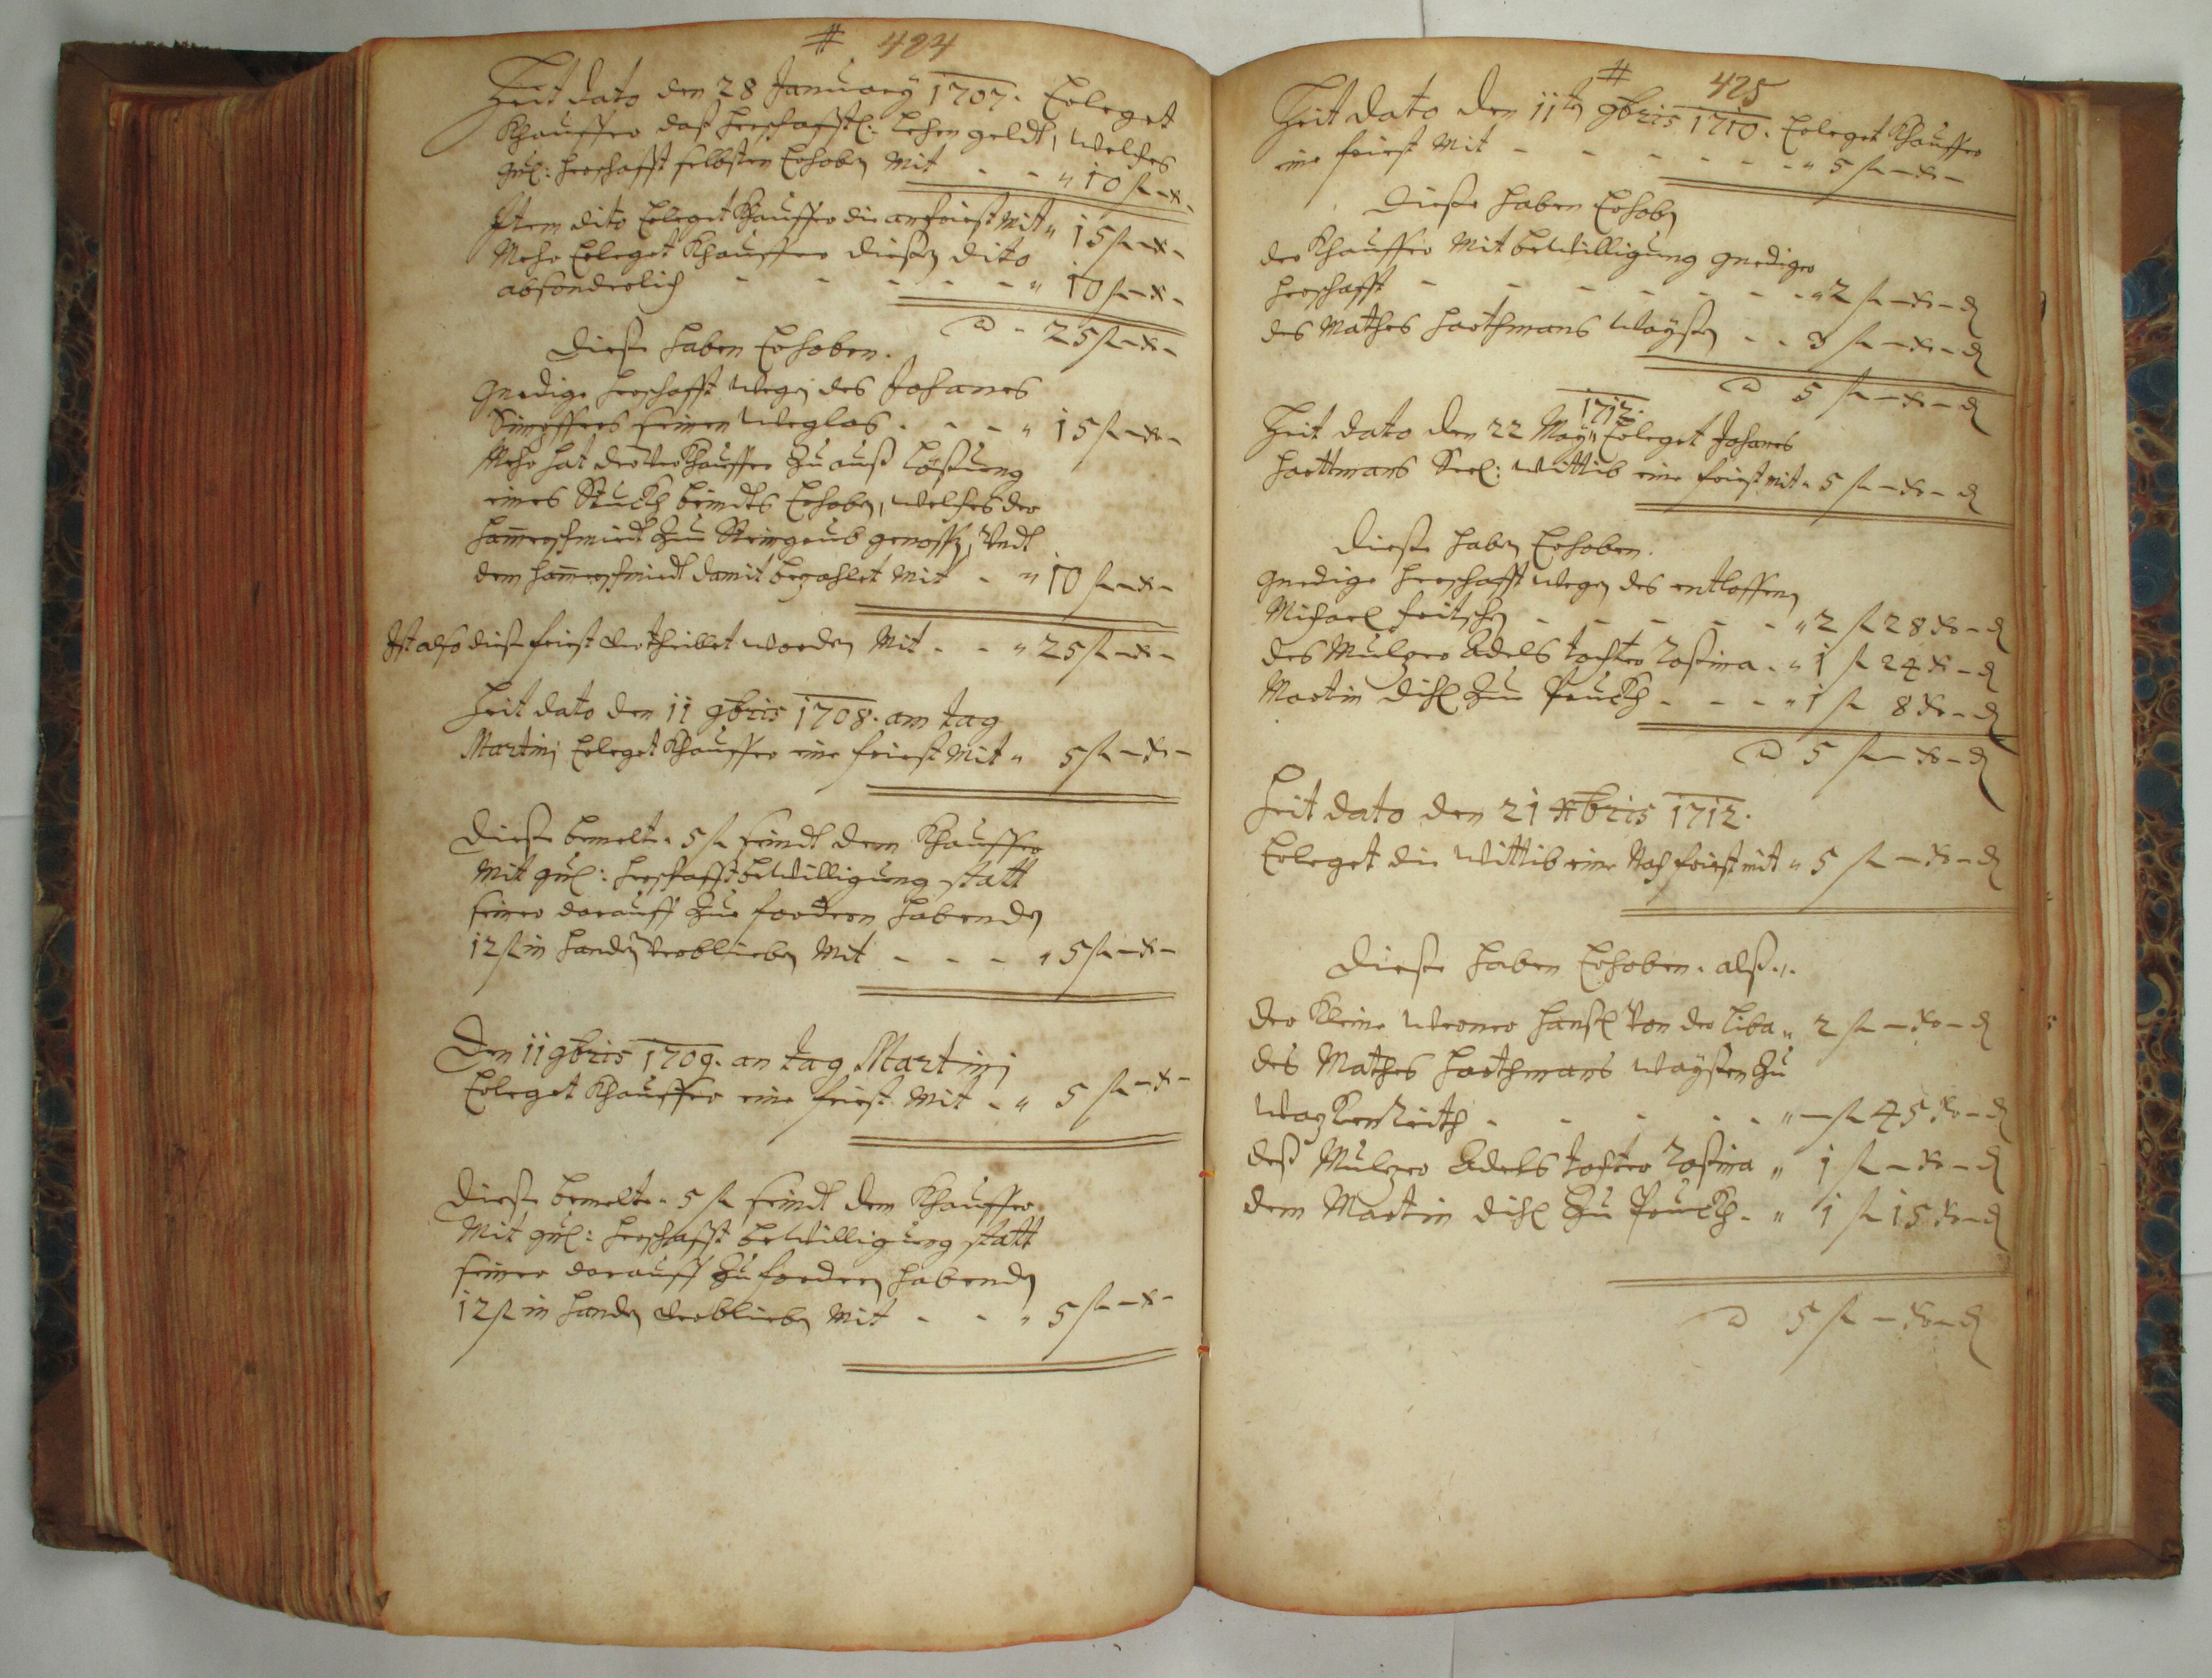 # 424
Heit dato den 28 January 1707. Erleget
Khauffer daß herschafftl: Lehen geldt, welches
gnl: herschafft selbsten Erhoben Mit - - " 10 fl - x -
Item dito Erleget Khauffer die anfrist Mit " 15 fl - x -
Mehr Erleget Khauffer diesen dito
absonderlich - - - - - " 10 fl - x -
a - 25 fl - x -
Dieße haben Erhoben.
Gnedige herschafft wegen des Johanes
seinen weglas - - - " 15 fl - x -
Mehr hat der Verkhauffer zu auß Lößung
eines Stuckh Erhoben, welches der
hammerschmiedt zu Steingrub genossen, Undt
dem hammerschmiedt damit bezahlet Mit - " 10 fl - x -
Ist also diese frist vertheillet worden Mit - - " 25 fl - x -
Heit dato den 11 9bris 1708. am tag
Martini Erleget Khauffer eine frist Mit " 5 fl - x -
Dieße bemelte 5 fl seindt dem Khauffer
Mit gnl: herschafft bewilligung statt
seiner darauff zue fordern habenden
12 fl in handen verblieben Mit - - - " 5 fl - x -
Den 11 9bris 1709. an tag Martini
Erleget Khauffer eine frist Mit - " 5 fl - x -
Dieße bemelte 5 fl seindt dem Khauffer
Mit gnl: herschafft bewilligung statt
seiner darauff zu fordern habenden
12 fl in handen verblieben Mit - - " 5 fl - x -
# 425
Heit dato den 11ten 9bris 1710. Erleget Khauffer
eine frist Mit - - - - - - " 5 fl - x -
Dieße haben Erhoben
der Khauffer Mit bewilligung gnediger
herschafft - - - - - - " 2 fl - x - d
des Mathes harthmans waysen - - 3 fl - x - d
a 5 fl - x - d
1712.
Heit dato den 22 May " Erleget Johanes
harttmans Seel: wittib eine frist mit " 5 fl - x - d
Dieße haben Erhoben.
Gnedige herschafft wegen des entloffenen
Michael fritschen - - - - - " 2 fl 28 x - d
des Mulzer Adels tochter Rosina - " 1 fl 24 x - d
Martin dihl zu - - - " 1 fl 8 x - d
a 5 fl - x - d
Heit dato den 21 Xbris 1712.
Erleget die wittib eine Nachfrist mit " 5 fl - x - d
Dieße haben Erhoben. alß./.
der kleine werner hanßl von der Liba " 2 fl - x - d
des Mathes harthmans waysen zu
- - - - - " - fl 45 x - d
deß Mulzer Adels tochter Rosina " 1 fl - x - d
dem Martin dihl zu - " 1 fl 15 x - d
a 5 fl - x - d